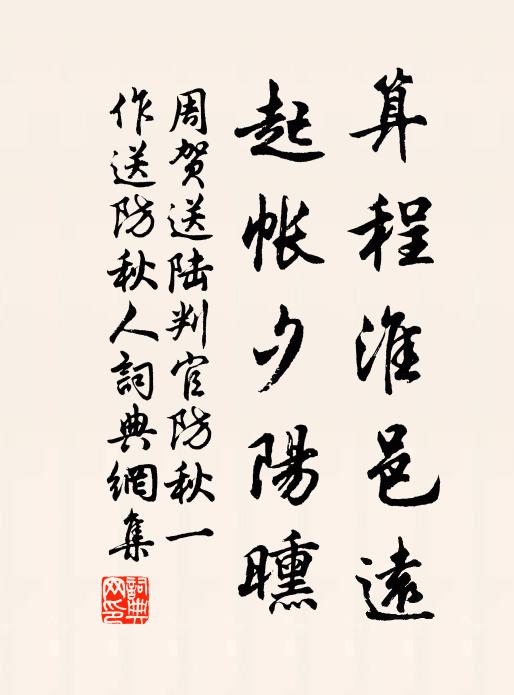 算程淮邑遠
起帳夕陽曛
周賀送陸判官防秋一
作送防秋人詞典網集
詞典網印